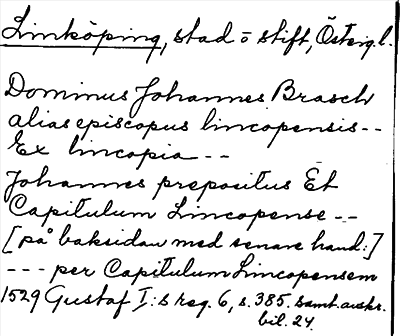 Linköping, stad o stift, Östergl.
Dominus Johannes Brasch
alias episcopus lincopensis --
Ex lincopia --
Johannes prepositus Et
Capitulum Lincopense --
[på baksidan med senare hand:]
--- per Capitulum Lincopensem
1529 Gustaf I:s reg. 6, s. 385, samt. avskr.
bil. 24.